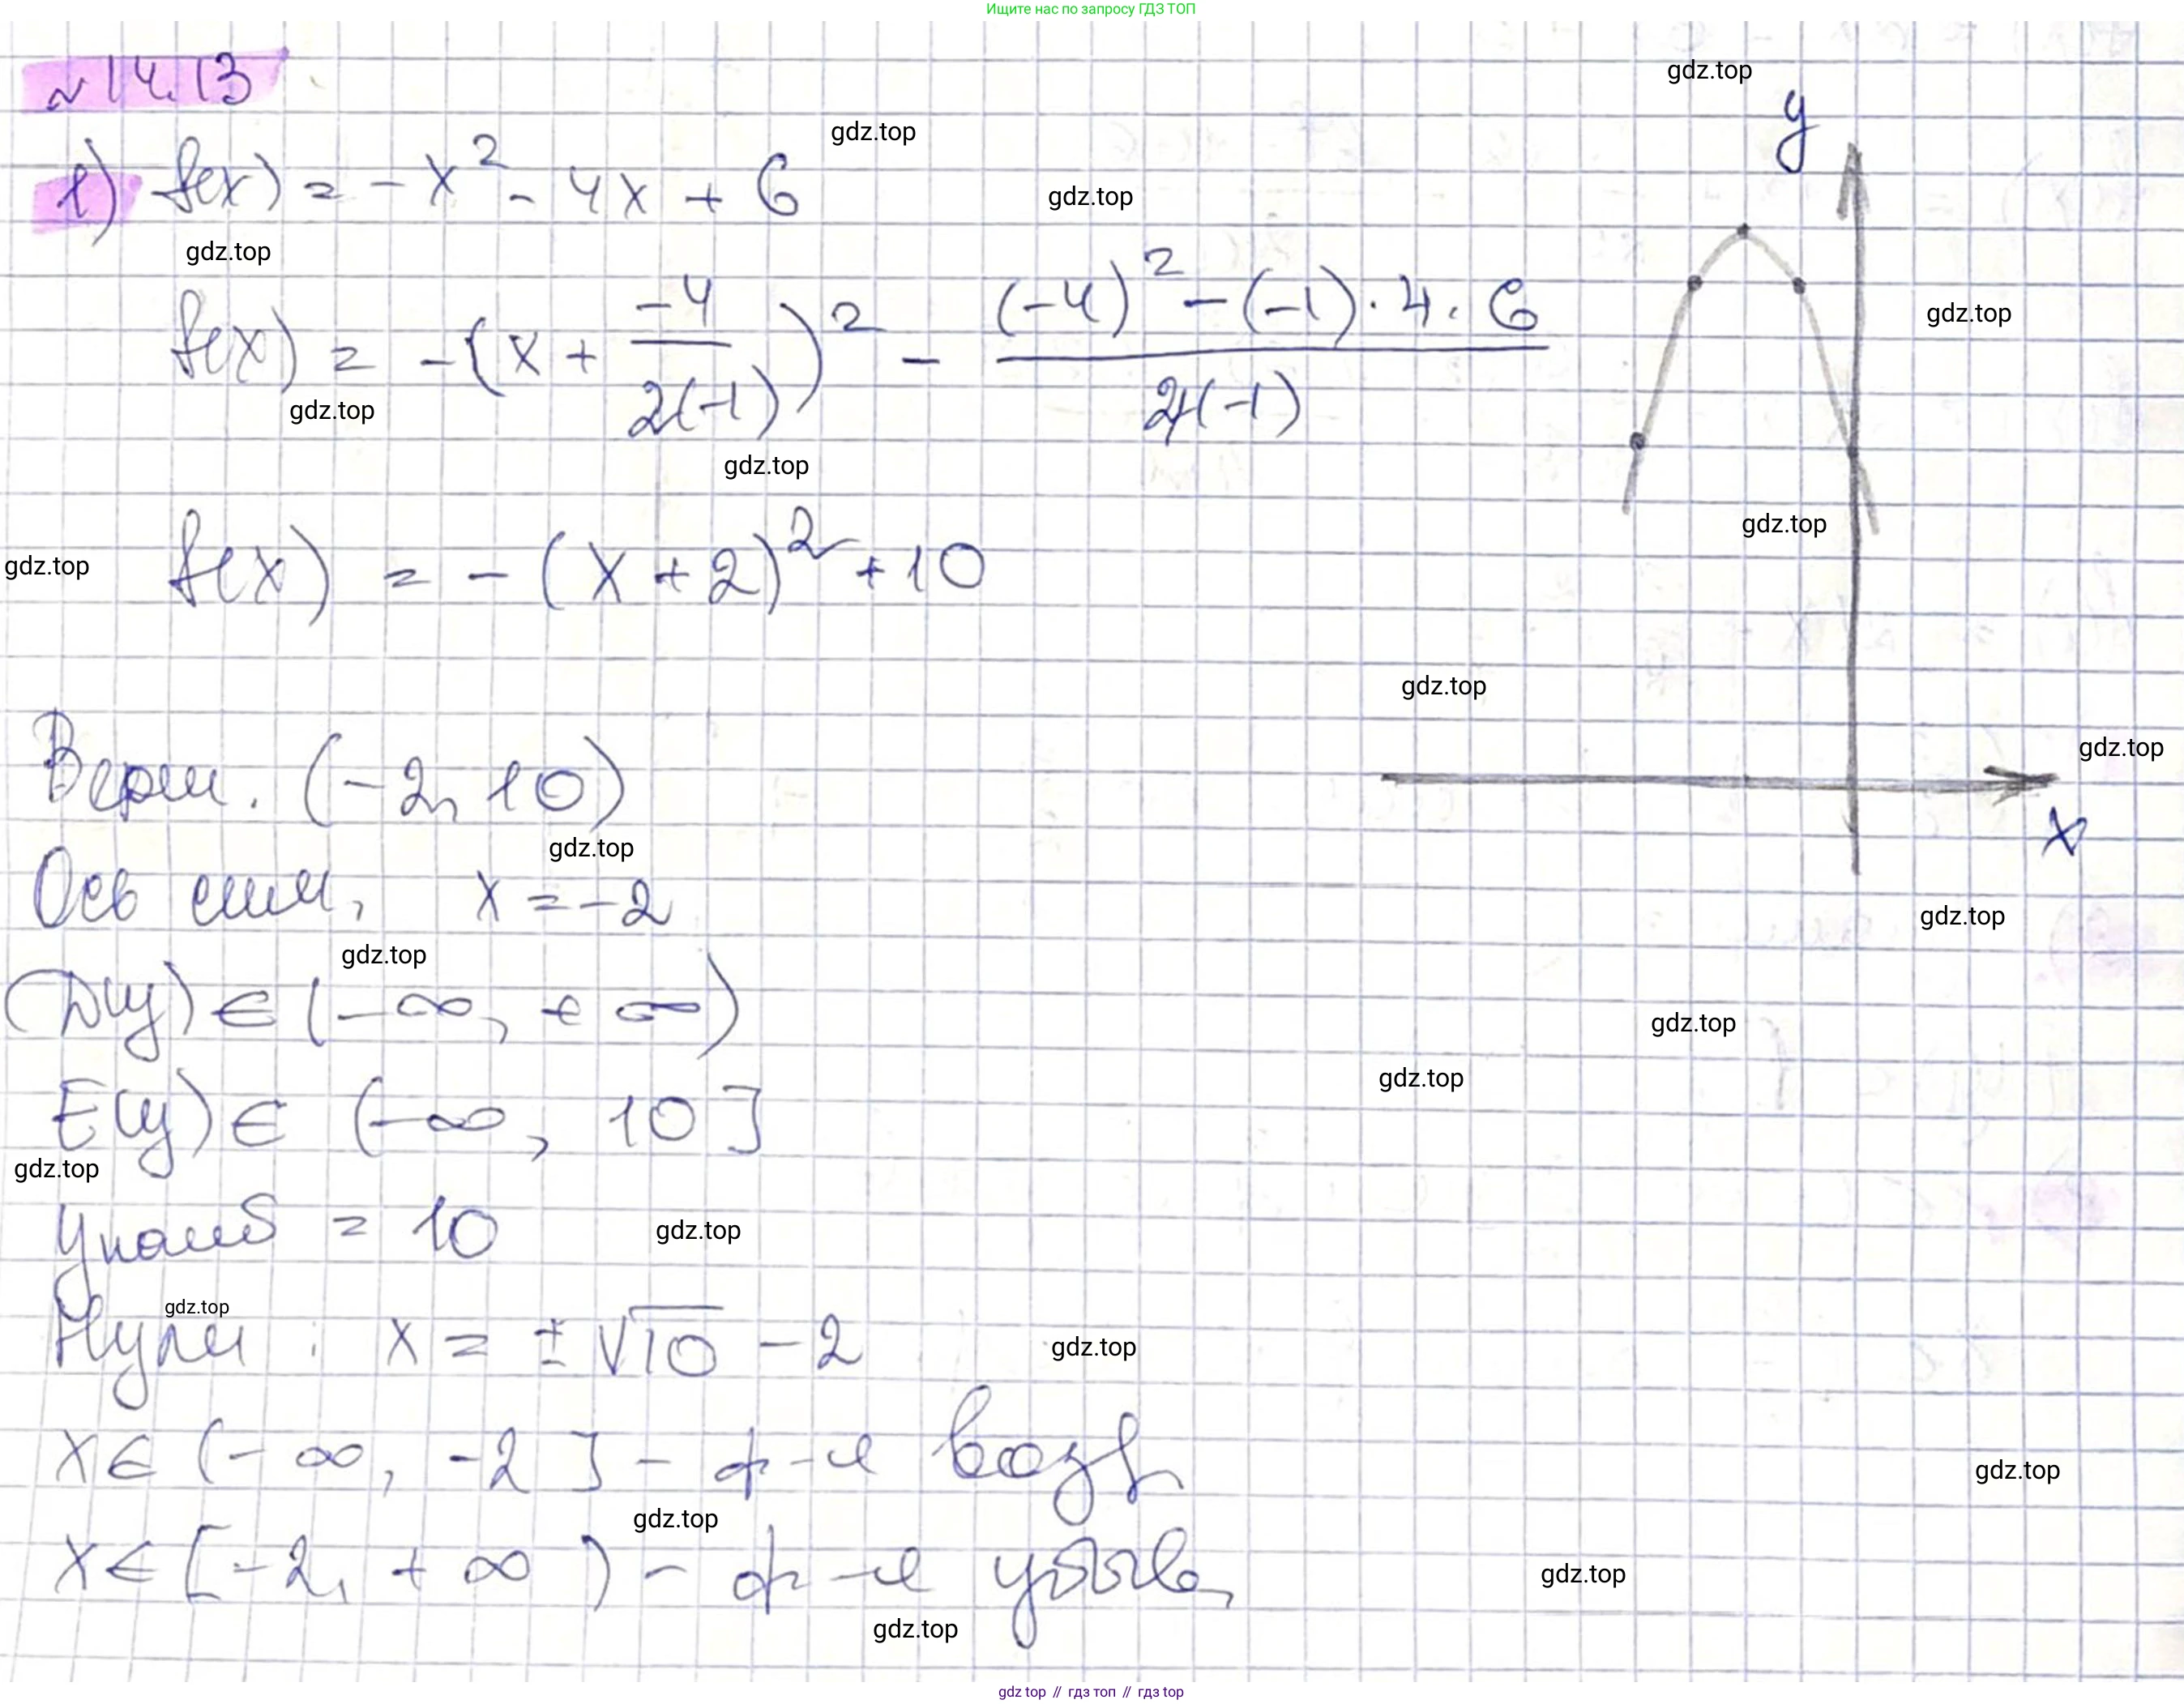 Ищите нас по запросу ГДЗ ТОП
№14.13
gdz.top
y
gdz.top
1) f(x) = -x² - 4x + 6
gdz.top
gdz.top
f(x) = -(x + \frac{-4}{2(-1)})² - \frac{(-4)² - (-1)·4·6}{4(-1)}
gdz.top
gdz.top
gdz.top
gdz.top
f(x) = -(x+2)² + 10
gdz.top
gdz.top
gdz.top
Верш. (-2, 10)
x
gdz.top
Ось сим, x = -2
gdz.top
gdz.top
D(y) ∈ (-∞, +∞)
gdz.top
gdz.top
E(y) ∈ (-∞, 10]
gdz.top
yнаиб = 10
gdz.top
gdz.top
Нули: x = ±√10 - 2
gdz.top
x ∈ (-∞, -2] - ф-я возр
gdz.top
gdz.top
x ∈ [-2, +∞) - ф-я убыв,
gdz.top
gdz.top
gdz top // гдз топ // гдз top